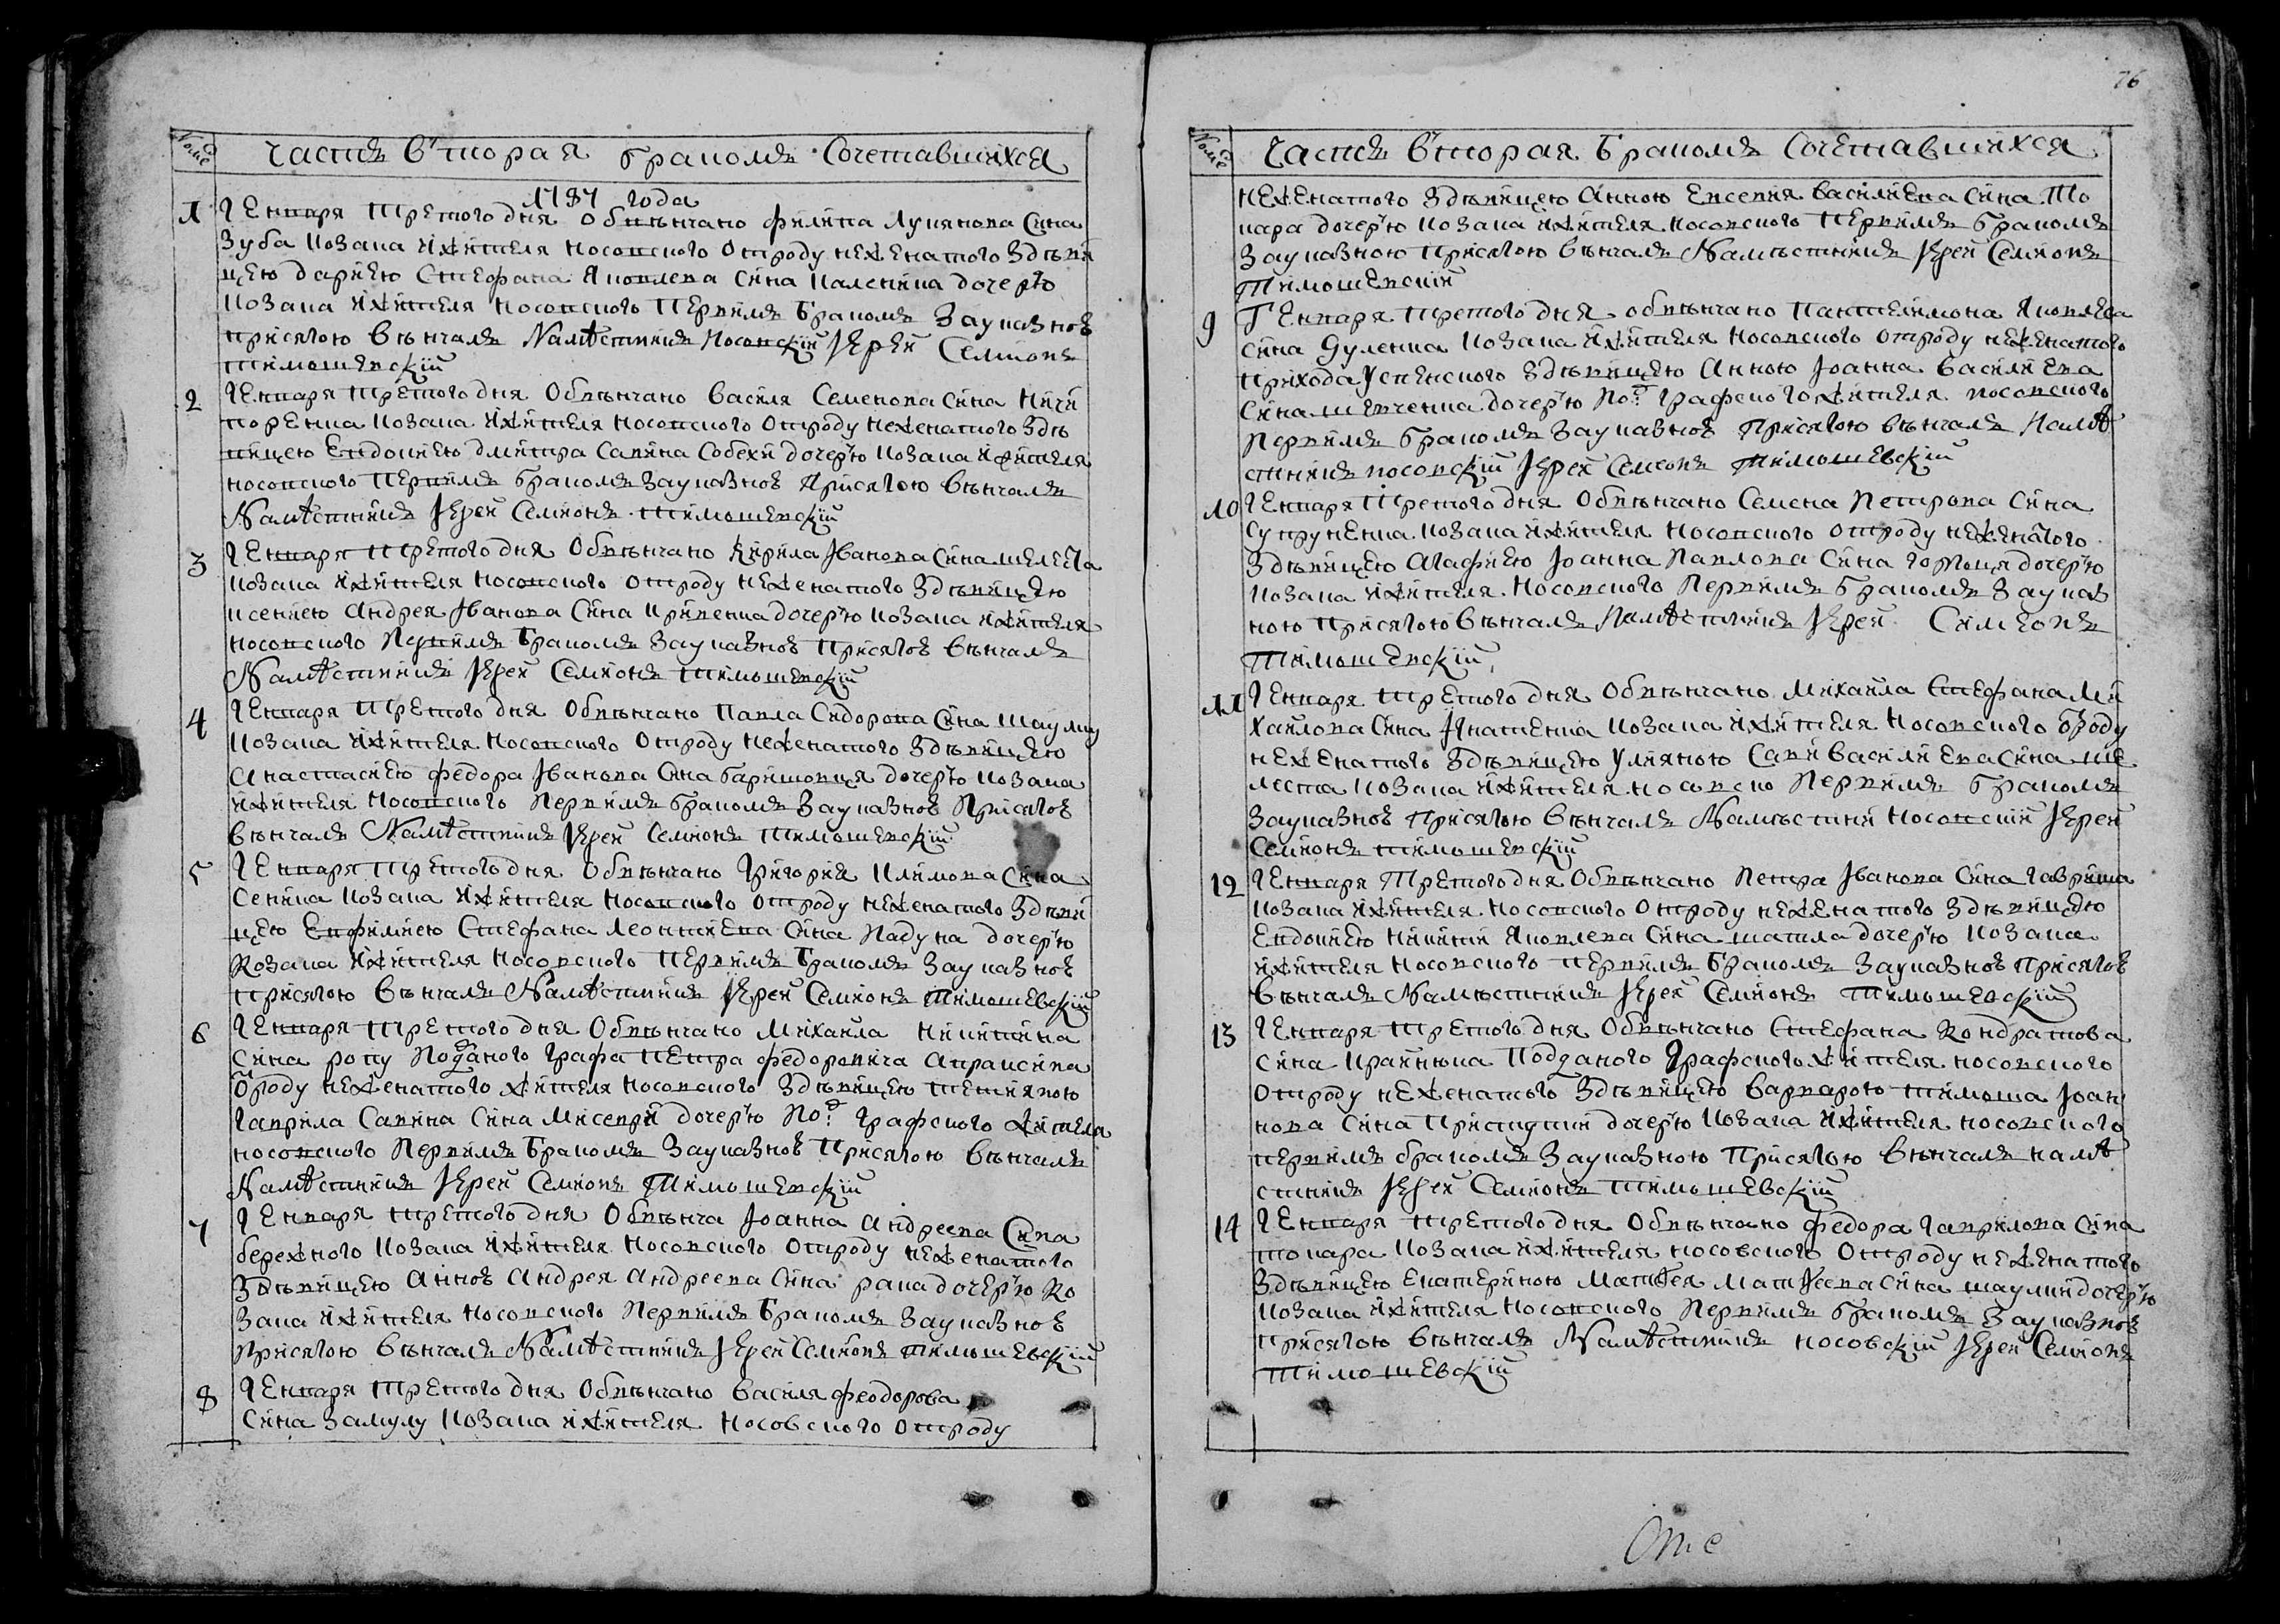 Номе
часть вторая браком сочетавшихся
1787 года
1 Генваря третого дня обвѣнчано Филипа Лукянова сина
Зуба козака и жителя носовского отроду неженатого здѣви
цею Дариею Стефана Яковлева сина Каленика дочерю
козака и жителя носовского первимъ бракомъ зауказною
присягою вѣнчалъ Намѣстникъ носовскій Іерей Семионъ
Тимошевскій
2 Генваря третого дня обвѣнчано Василя Семенова сина Ничи
поренка козака и жителя носовского отроду неженатого здѣ
вицею Евдокиею Дмитра Савина Собехи дочерю козака и жителя
носовского первимъ бракомъ зауказною присягою вѣнчалъ
Намѣстникъ Іерей Семионъ Тимошевскій
3 Генваря третого дня обвѣнчано Кирила Іванова сина Шелеста
козака и жителя носовского отроду неженатого здѣвицею
Ксениею Андрея Іванова сина Кривенка дочерю козака и жителя
носовского первимъ бракомъ зауказною присягою вѣнчалъ
Намѣстникъ Іерей Семионъ Тимошевскій
4 Генваря третого дня обвѣнчано Павла Сидорова сина Шаулку
козака и жителя носовского отроду неженатого здѣвицею
Анастасиею Федора Іванова сина Баришовця дочерю козака
и жителя носовского первимъ бракомъ зауказною присягою
вѣнчалъ Намѣстникъ Іерей Семионъ Тимошевскій
5 Генваря третого дня обвѣнчано Григория Климова сина
Сеника козака и жителя носовского отроду неженатого здѣви
цею Евфимиею Стефана Леонтиева сина Кадука дочерю
козака и жителя носовского первимъ бракомъ зауказною
присягою вѣнчалъ Намѣстникъ Іерей Семионъ Тимошевскій
6 Генваря третого дня обвѣнчано Михаила Никитина
сина Рону подданого графа Петра Федоровича Апраксина
отроду неженатого жителя носовского здѣвицею Тетияною
Гаврила Савина сина Мисеври дочерю под графского жителя
носовского первимъ бракомъ зауказною присягою вѣнчалъ
Намѣстникъ Іерей Семионъ Тимошевскій
7 Генваря третого дня обвѣнча Іоанна Андреева сина
бережного козака и жителя носовского отроду неженатого
здѣвицею Анною Андрея Андреева сина Рака дочерю ко
зака и жителя носовского первимъ бракомъ зауказною
присягою вѣнчалъ Намѣстникъ Іерей Семионъ Тимошевскій
8 Генваря третого дня обвѣнчано Василя Феодорова
сина Замулу козака и жителя носовского отроду
76
Номе
часть вторая браком сочетавшихся
неженатого здѣвицею Анною Евсевия Василиева сина То
кара дочерю козака и жителя носовского первимъ бракомъ
зауказною присягою вѣнчалъ Намѣстникъ Іерей Семионъ
Тимошевскій
9 Генваря третого дня обвѣнчано Пантелимона Яковлева
сина Дуленка козака и жителя носовского отроду неженатого
прихода Успенского здѣвицею Анною Іоанна Василиева
сина Шевченка дочерю под графского жителя носовского
первимъ бракомъ зауказною присягою вѣнчалъ Намѣ
стникъ носовскій Іерей Семеонъ Тимошевскій
10 Генваря третого дня обвѣнчано Семена Петрова сина
Супруненка козака и жителя носовского отроду неженатого
здѣвицею Агафиею Іоанна Павлова сина дочерю
козака и жителя носовского первимъ бракомъ зауказ
ною присягою вѣнчалъ Намѣстникъ Іерей Симеонъ
Тимошевскій
11 Генваря третого дня обвѣнчано Михаила Стефана Ми
хаилова сина Игнатенка козака и жителя носовского отроду
неженатого здѣвицею Улияною Сави Василиева сина Ше
леста козака и жителя носовско первимъ бракомъ
зауказною присягою вѣнчалъ Намѣстник носовскій Іерей
Семионъ Тимошевскій
12 Генваря третого дня обвѣнчано Петра Іванова сина Гавриша
козака и жителя носовского отроду неженатого здѣвицею
Евдокиею Никити Яковлева сина Шатила дочерю козака
и жителя носовского первимъ бракомъ зауказною присягою
вѣнчалъ Намѣстникъ Іерей Семионъ Тимошевскій
13 Генваря третого дня обвѣнчано Стефана Кондратова
сина Крайнюка подданого графского жителя носовского
отроду неженатого здѣвицею Варварою Тимоша Іоан
нова сина дочерю козака и жителя носовского
первимъ бракомъ зауказною присягою вѣнчалъ Намѣ
стникъ Іерей Семионъ Тимошевскій
14 Генваря третого дня обвѣнчано Федора Гаврилова сина
Токара козака и жителя носовского отроду неженатого
здѣвицею Екатериною Матѳея Матѳеева сина Шаулки дочерю
козака и жителя носовского первимъ бракомъ зауказною
присягою вѣнчалъ Намѣстникъ носовскій Іерей Семионъ
Тимошевскій